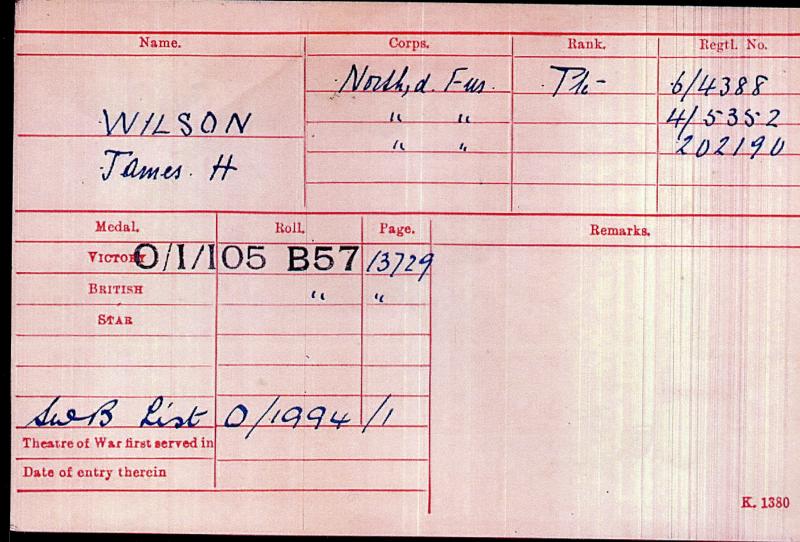 Name. Corps. Rank. Regtl. No.
North,d. Fus. Pte 6/4388
WILSON " " 4/5352
James. H " " 202190
Medal. Roll. Page. Remarks.
VICTORY O/1/105 B57 13729
BRITISH " "
STAR
SWB List O/1994 /1
Theatre of War first served in
Date of entry therein
K. 1380